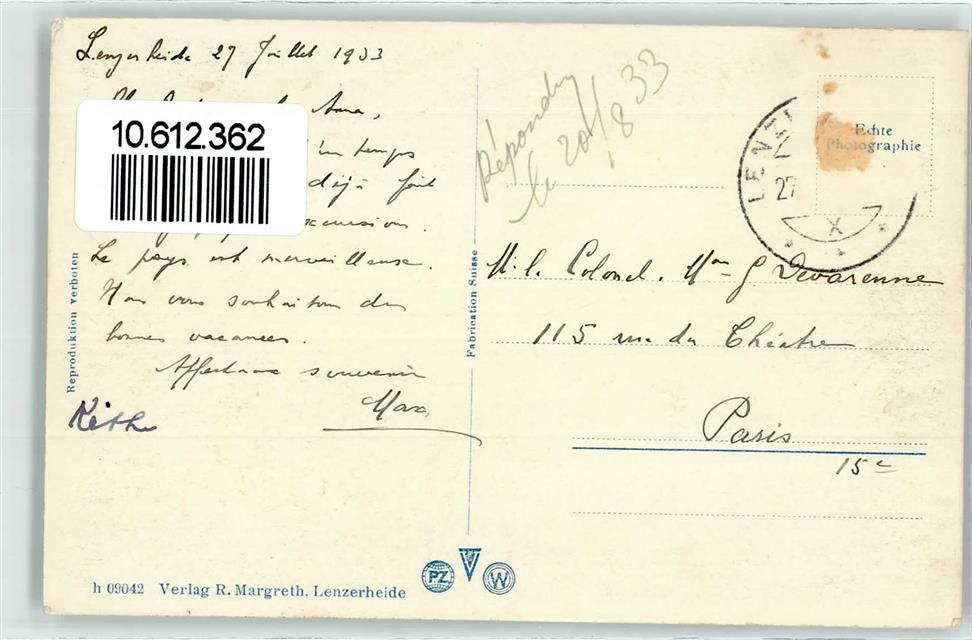 Lenzerheide 27 Juillet 1933
Anna,
10.612.362
temps
déjà fait
excursions.
Le pays est merveilleuse.
Nous vous souhaitons de
bonnes vacances.
Affectueux souvenir
Max,
Käthe
Répondu
le 20/8 33
Echte
Photographie
LENZ
27
X
M. le Colonel. Mme G Devarenne
115 rue du Théâtre
Paris
15e
Reproduktion verboten
Fabrication Suisse
PZ
W
h 09042 Verlag R. Margreth. Lenzerheide